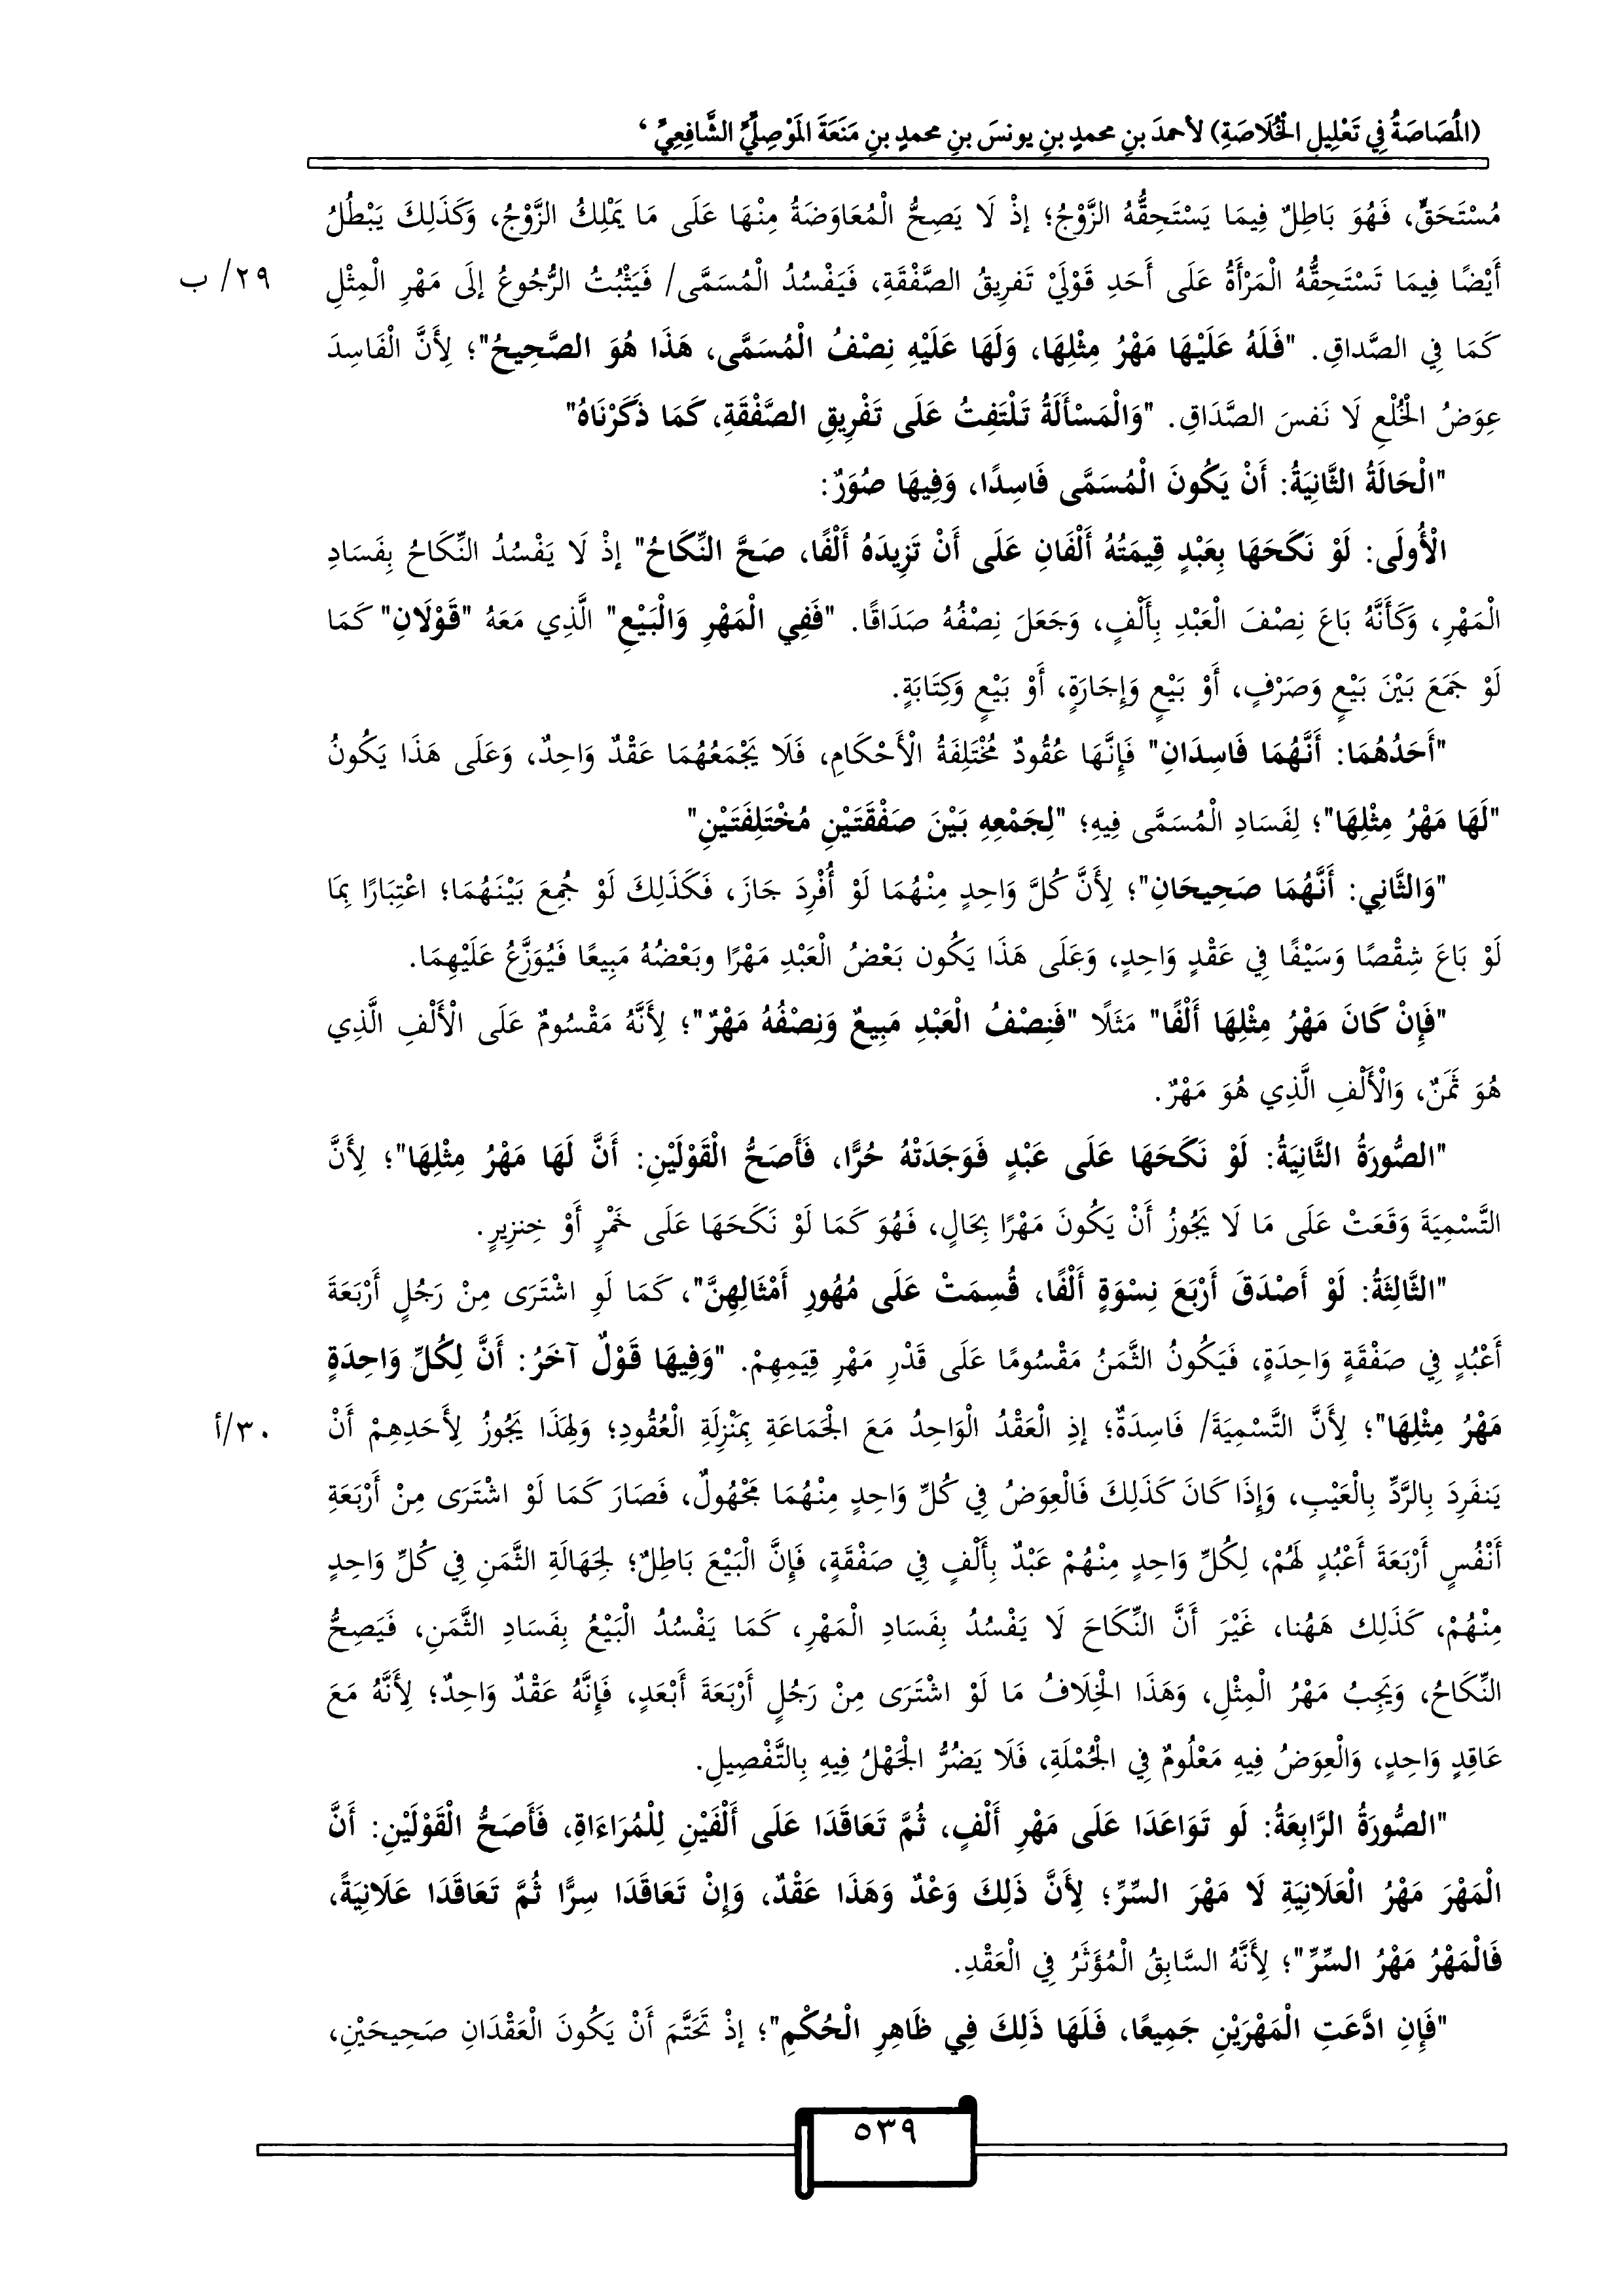 (المُصَاصَةُ فِي تَعْلِيلِ الْخُلَاصَةِ) لأحمدَ بنِ محمدٍ بنِ يونسَ بنِ محمدٍ بنِ مَنَعَةَ المَوْصِلِيِّ الشَّافِعِيِّ ،
مُسْتَحَقٍّ، فَهُوَ بَاطِلٌ فِيمَا يَسْتَحِقُّهُ الزَّوْجُ؛ إذْ لَا يَصِحُّ الْمُعَاوَضَةُ مِنْهَا عَلَى مَا يَمْلِكُ الزَّوْجُ، وَكَذَلِكَ يَبْطُلُ
أَيْضًا فِيمَا تَسْتَحِقُّهُ الْمَرْأَةُ عَلَى أَحَدِ قَوْلَيْ تَفرِيقُ الصَّفْقَةِ، فَيَفْسُدُ الْمُسَمَّى/ فَيَثْبُتُ الرُّجُوعُ إلَى مَهْرِ الْمِثْلِ ٢٩/ ب
كَمَا فِي الصَّداقِ. "فَلَهُ عَلَيْهَا مَهْرُ مِثْلِهَا، وَلَهَا عَلَيْهِ نِصْفُ الْمُسَمَّى، هَذَا هُوَ الصَّحِيحُ"؛ لِأَنَّ الْفَاسِدَ
عِوَضُ الْخُلْعِ لَا نَفسَ الصَّدَاقِ. "وَالْمَسْأَلَةُ تَلْتَفِتُ عَلَى تَفْرِيقِ الصَّفْقَةِ، كَمَا ذَكَرْنَاهُ"
"الْحَالَةُ الثَّانِيَةُ: أَنْ يَكُونَ الْمُسَمَّى فَاسِدًا، وَفِيهَا صُوَرٌ:
الْأُولَى: لَوْ نَكَحَهَا بِعَبْدٍ قِيمَتُهُ أَلْفَانِ عَلَى أَنْ تَزِيدَهُ أَلْفًا، صَحَّ النِّكَاحُ" إذْ لَا يَفْسُدُ النِّكَاحُ بِفَسَادِ
الْمَهْرِ، وَكَأَنَّهُ بَاعَ نِصْفَ الْعَبْدِ بِأَلْفٍ، وَجَعَلَ نِصْفُهُ صَدَاقًا. "فَفِي الْمَهْرِ وَالْبَيْعِ" الَّذِي مَعَهُ "قَوْلَانِ" كَمَا
لَوْ جَمَعَ بَيْنَ بَيْعٍ وَصَرْفٍ، أَوْ بَيْعٍ وَإِجَارَةٍ، أَوْ بَيْعٍ وَكِتَابَةٍ.
"أَحَدُهُمَا: أَنَّهُمَا فَاسِدَانِ" فَإِنَّهَا عُقُودٌ مُخْتَلِفَةُ الْأَحْكَامِ، فَلَا يَجْمَعُهُمَا عَقْدٌ وَاحِدٌ، وَعَلَى هَذَا يَكُونُ
"لَهَا مَهْرُ مِثْلِهَا"؛ لِفَسَادِ الْمُسَمَّى فِيهِ؛ "لِجَمْعِهِ بَيْنَ صَفْقَتَيْنِ مُخْتَلِفَتَيْنِ"
"وَالثَّانِي: أَنَّهُمَا صَحِيحَانِ"؛ لِأَنَّ كُلَّ وَاحِدٍ مِنْهُمَا لَوْ أُفْرِدَ جَازَ، فَكَذَلِكَ لَوْ جُمِعَ بَيْنَهُمَا؛ اعْتِبَارًا بِمَا
لَوْ بَاعَ شِقْصًا وَسَيْفًا فِي عَقْدٍ وَاحِدٍ، وَعَلَى هَذَا يَكُون بَعْضُ الْعَبْدِ مَهْرًا وبَعْضُهُ مَبِيعًا فَيُوَزَّعُ عَلَيْهِمَا.
"فَإِنْ كَانَ مَهْرُ مِثْلِهَا أَلْفًا" مَثَلًا "فَنِصْفُ الْعَبْدِ مَبِيعٌ وَنِصْفُهُ مَهْرٌ"؛ لِأَنَّهُ مَقْسُومٌ عَلَى الْأَلْفِ الَّذِي
هُوَ ثَمَنٌ، وَالْأَلْفِ الَّذِي هُوَ مَهْرٌ.
"الصُّورَةُ الثَّانِيَةُ: لَوْ نَكَحَهَا عَلَى عَبْدٍ فَوَجَدَتْهُ حُرًّا، فَأَصَحُّ الْقَوْلَيْنِ: أَنَّ لَهَا مَهْرُ مِثْلِهَا"؛ لِأَنَّ
التَّسْمِيَةَ وَقَعَتْ عَلَى مَا لَا يَجُوزُ أَنْ يَكُونَ مَهْرًا بِحَالٍ، فَهُوَ كَمَا لَوْ نَكَحَهَا عَلَى خَمْرٍ أَوْ خِنزِيرٍ.
"الثَّالِثَةُ: لَوْ أَصْدَقَ أَرْبَعَ نِسْوَةٍ أَلْفًا، قُسِمَتْ عَلَى مُهُورِ أَمْثَالِهِنَّ"، كَمَا لَوِ اشْتَرَى مِنْ رَجُلٍ أَرْبَعَةَ
أَعْبُدٍ فِي صَفْقَةٍ وَاحِدَةٍ، فَيَكُونُ الثَّمَنُ مَقْسُومًا عَلَى قَدْرِ مَهْرِ قِيَمِهِمْ. "وَفِيهَا قَوْلٌ آخَرُ: أَنَّ لِكُلِّ وَاحِدَةٍ
مَهْرُ مِثْلِهَا"؛ لِأَنَّ التَّسْمِيَةَ/ فَاسِدَةٌ؛ إذِ الْعَقْدُ الْوَاحِدُ مَعَ الْجَمَاعَةِ بِمَنْزِلَةِ الْعُقُودِ؛ وَلِهَذَا يَجُوزُ لِأَحَدِهِمْ أَنْ ٣٠/أ
يَنفَرِدَ بِالرَّدِّ بِالْعَيْبِ، وَإِذَا كَانَ كَذَلِكَ فَالْعِوَضُ فِي كُلِّ وَاحِدٍ مِنْهُمَا مَجْهُولٌ، فَصَارَ كَمَا لَوْ اشْتَرَى مِنْ أَرْبَعَةِ
أَنْفُسٍ أَرْبَعَةَ أَعْبُدٍ لَهُمْ، لِكُلِّ وَاحِدٍ مِنْهُمْ عَبْدٌ بِأَلْفٍ فِي صَفْقَةٍ، فَإِنَّ الْبَيْعَ بَاطِلٌ؛ لِجَهَالَةِ الثَّمَنِ فِي كُلِّ وَاحِدٍ
مِنْهُمْ، كَذَلِك هَهُنا، غَيْرَ أَنَّ النِّكَاحَ لَا يَفْسُدُ بِفَسَادِ الْمَهْرِ، كَمَا يَفْسُدُ الْبَيْعُ بِفَسَادِ الثَّمَنِ، فَيَصِحُّ
النِّكَاحُ، وَيَجِبُ مَهْرُ الْمِثْلِ، وَهَذَا الْخِلَافُ مَا لَوْ اشْتَرَى مِنْ رَجُلٍ أَرْبَعَةَ أَبْعَدٍ، فَإِنَّهُ عَقْدٌ وَاحِدٌ؛ لِأَنَّهُ مَعَ
عَاقِدٍ وَاحِدٍ، وَالْعِوَضُ فِيهِ مَعْلُومٌ فِي الْجُمْلَةِ، فَلَا يَضُرُّ الْجَهْلُ فِيهِ بِالتَّفْصِيلِ.
"الصُّورَةُ الرَّابِعَةُ: لَو تَوَاعَدَا عَلَى مَهْرِ أَلْفٍ، ثُمَّ تَعَاقَدَا عَلَى أَلْفَيْنِ لِلْمُرَاءَاةِ، فَأَصَحُّ الْقَوْلَيْنِ: أَنَّ
الْمَهْرَ مَهْرُ الْعَلَانِيَةِ لَا مَهْرَ السِّرِّ؛ لِأَنَّ ذَلِكَ وَعْدٌ وَهَذَا عَقْدٌ، وَإِنْ تَعَاقَدَا سِرًّا ثُمَّ تَعَاقَدَا عَلَانِيَةً،
فَالْمَهْرُ مَهْرُ السِّرِّ"؛ لِأَنَّهُ السَّابِقُ الْمُؤَثَرُ فِي الْعَقْدِ.
"فَإِنِ ادَّعَتِ الْمَهْرَيْنِ جَمِيعًا، فَلَهَا ذَلِكَ فِي ظَاهِرِ الْحُكْمِ"؛ إذْ تَحَتَّمَ أَنْ يَكُونَ الْعَقْدَانِ صَحِيحَيْنِ،
٥٣٩